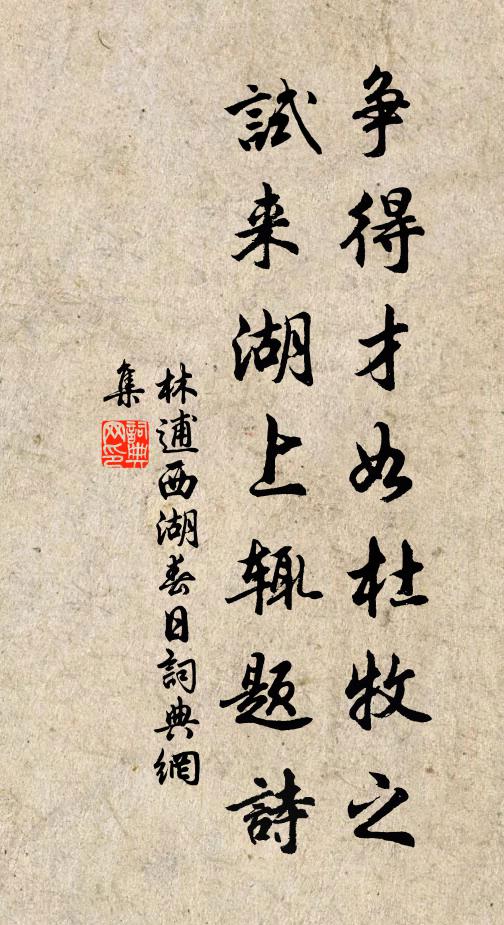 争得才如杜牧之
試来湖上辄题詩
林逋西湖春日詞典網
集
詞典
网印